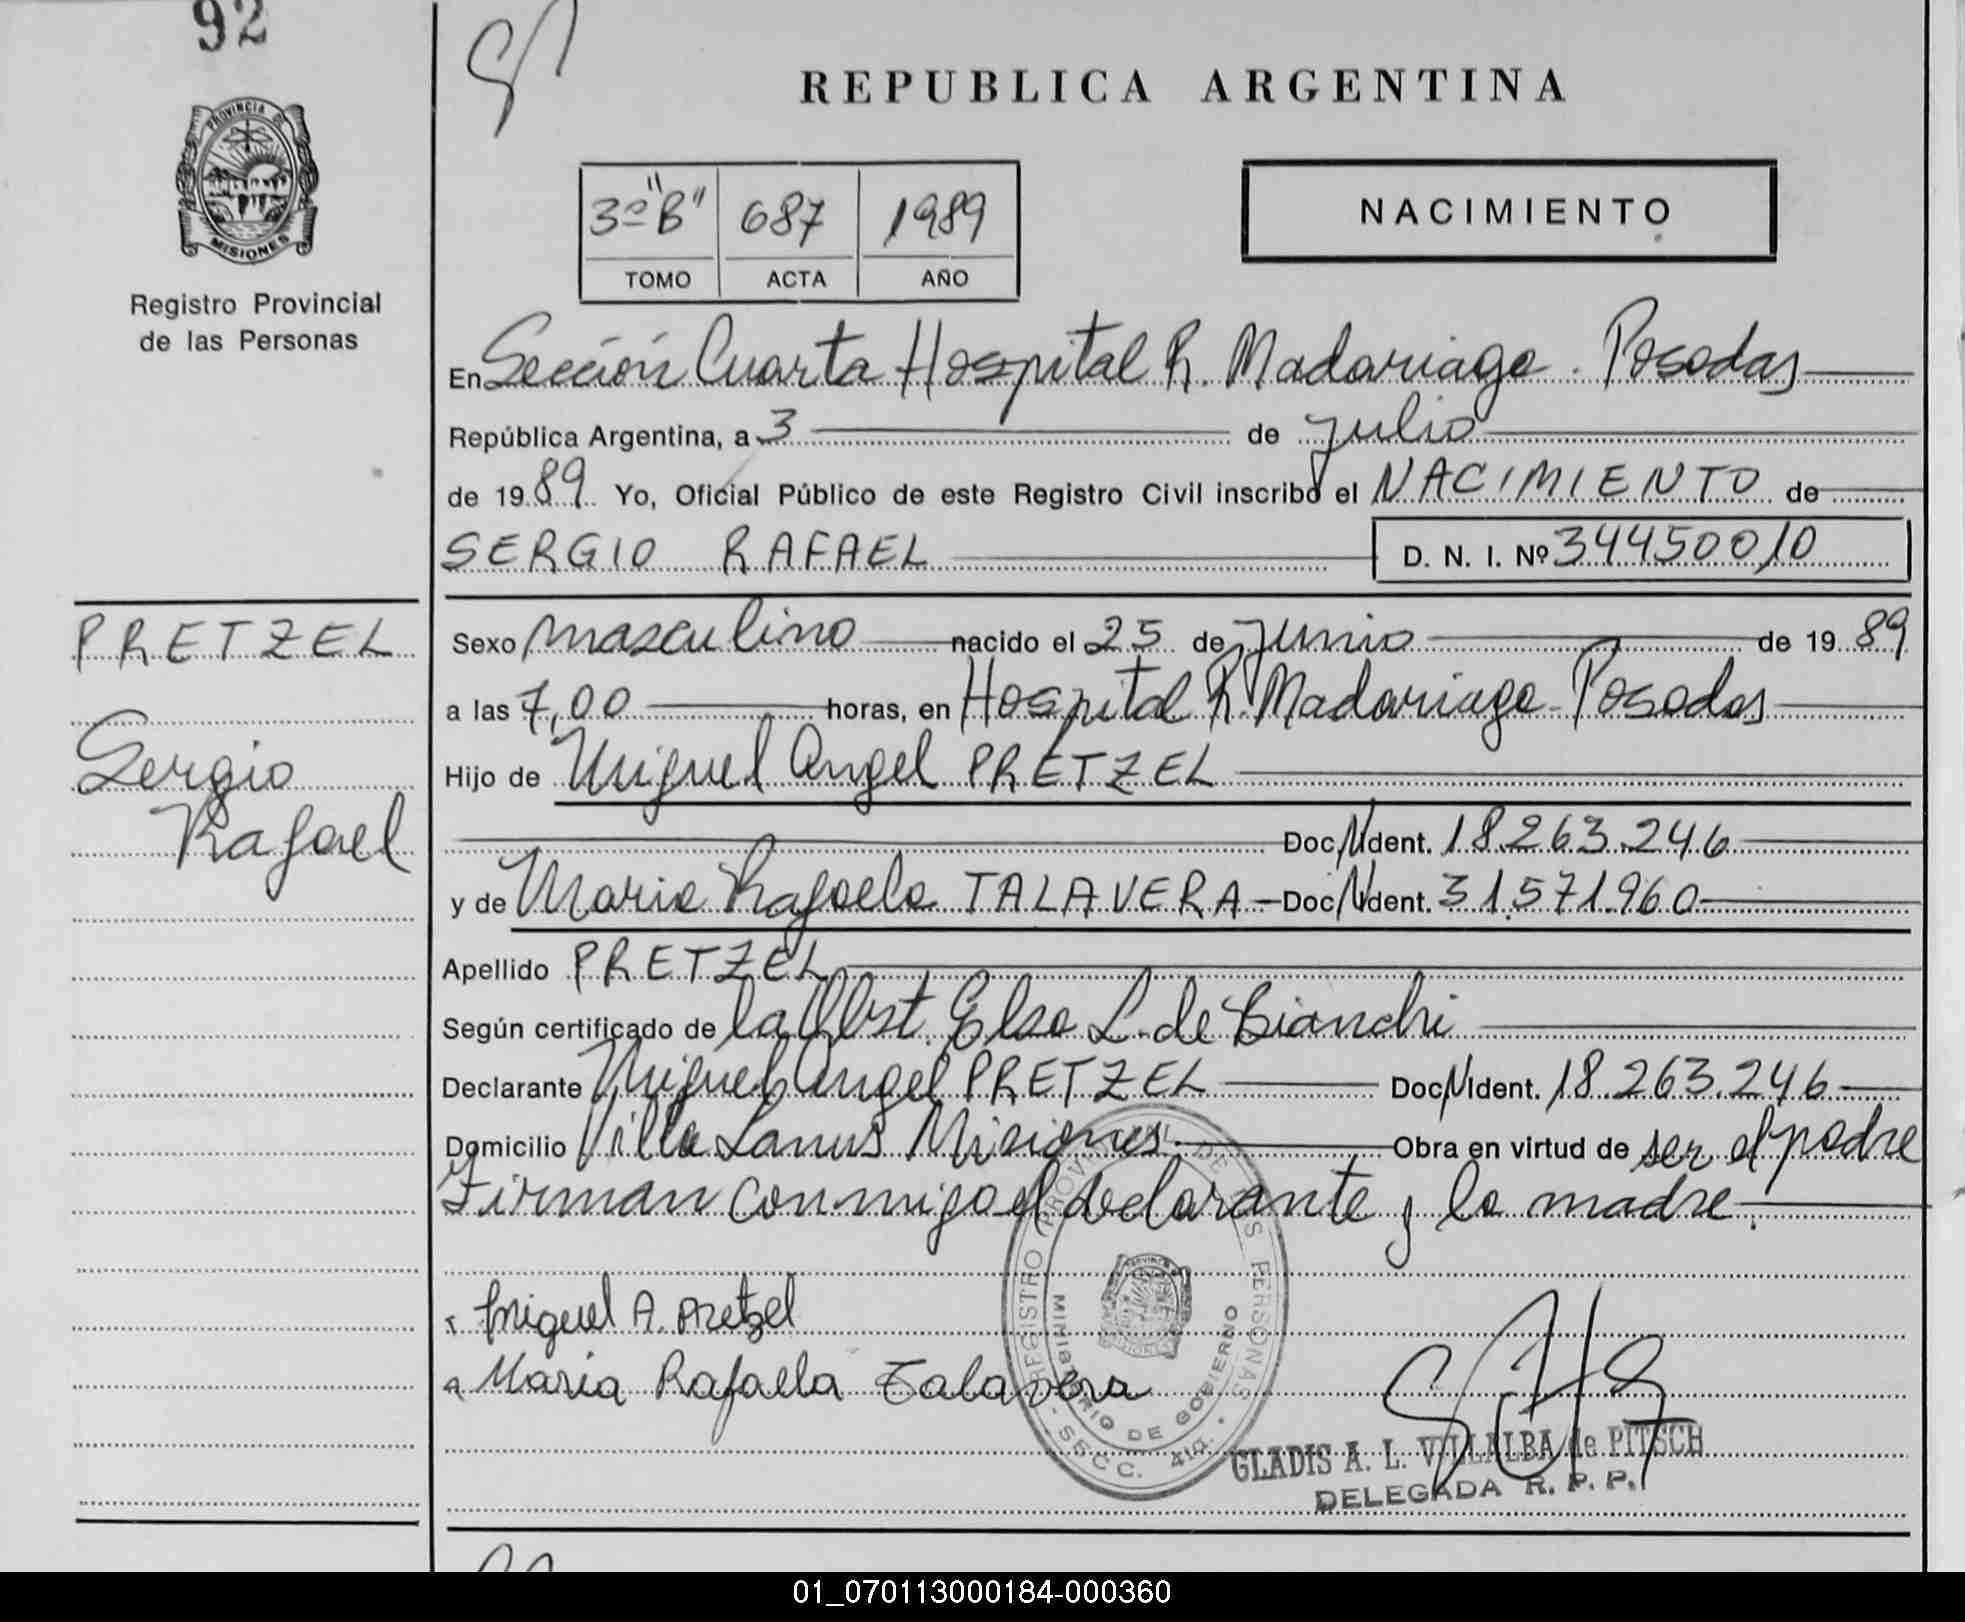 92
PROVINCIA DE
MISIONES
Registro Provincial
de las Personas
REPUBLICA ARGENTINA
3º "B" 687 1989
TOMO ACTA AÑO
NACIMIENTO
En Sección Cuarta Hospital R. Madariaga. Posadas
República Argentina, a 3 de julio
de 1989 Yo, Oficial Público de este Registro Civil inscribo el NACIMIENTO de
SERGIO RAFAEL D. N. I. Nº 34450010
PRETZEL
Sergio
Rafael
Sexo masculino nacido el 25 de junio de 1989
a las 7,00 horas, en Hospital R. Madariaga - Posadas
Hijo de Miguel Angel PRETZEL
Doc. N. Ident. 18.263.246
y de Maria Rafaela TALAVERA - Doc. N. Ident. 31.571.960
Apellido PRETZEL
Según certificado de la Obst. Elsa L. de Bianchi
Declarante Miguel Angel PRETZEL Doc. N. Ident. 18.263.246
Domicilio Villa Lanus Misiones. Obra en virtud de ser el padre
Firman conmigo el declarante y la madre.
Miguel A. Pretzel
Maria Rafaela Talavera
REGISTRO PROVINCIAL DE LAS PERSONAS
MINISTERIO DE GOBIERNO
SECC. 4ta.
GLADIS A. L. VILLALBA de PITSCH
DELEGADA R. P. P.
01_070113000184-000360